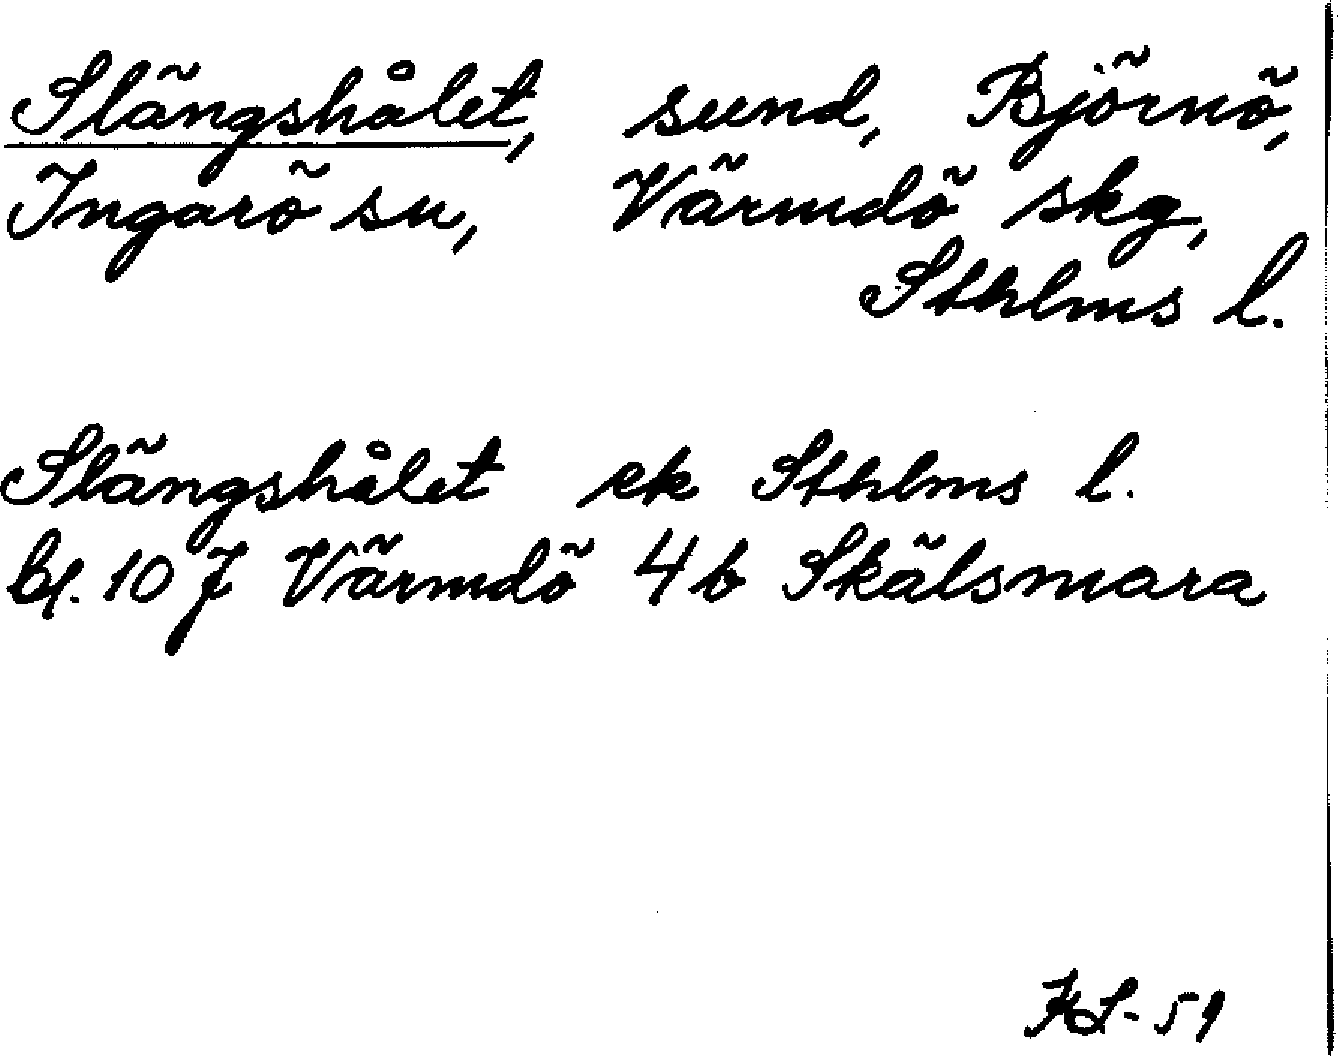 Slängshålet, sund, Björnö,
Ingarö sn, Värmdö skg,
Sthlms l.
Slängshålet ek Sthlms l.
bl. 107 Värmdö 4b Skälsmara
HL-59